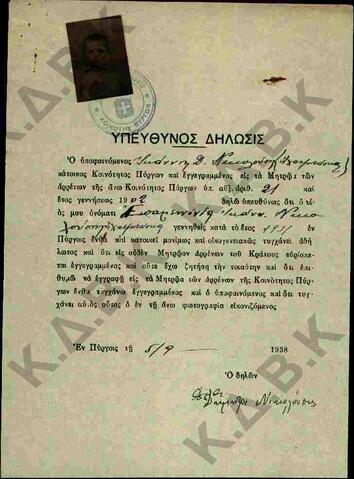 ΥΠΕΥΘΥΝΟΣ ΔΗΛΩΣΙΣ
Ὁ ὑποφαινόμενος Ἰωάννης Δ.
κάτοικος Κοινότητος Πύργων καὶ ἐγγεγραμμένος εἰς τὰ Μητρῷα τῶν
ἀρρένων τῆς ἄνω Κοινότητος Πύργων ὑπ. αὔξ. ἀριθ. 21 καὶ
ἔτος γεννήσεως 1902 δηλῶ ὑπευθύνως ὅτι ὁ
υἱός μου ὀνόματι
γεννηθεὶς κατὰ τὸ ἔτος 1931 ἐν
Πύργοις ἔνθα καὶ κατοικεῖ μονίμως καὶ οἰκογενειακῶς τυγχάνει ἀδή
λωτος καὶ ὅτι εἰς οὐδὲν Μητρῷον ἀρρένων τοῦ Κράτους εὑρίσκε
ται ἐγγεγραμμένος καὶ οὔτε ἔχω ζητήσῃ τὴν τοιαύτην καὶ ὅτι ἐπι
θυμῶ νὰ ἐγγραφῇ εἰς τὰ Μητρῷα τῶν ἀρρένων τῆς Κοινότητος Πύρ
γων ἔνθα τυγχάνω ἐγγεγραμμένος καὶ ὁ ὑποφαινόμενος καὶ ὅτι τυγ
χάνει αὐτὸς οὗτος ὁ ἐν τῇ ἄνω φωτογραφίᾳ εἰκονιζόμενος
Ἐν Πύργοις τῇ 5/9 1938
Ὁ δηλῶν
Κ.Δ.Β.Κ
Κ.Δ.Β.Κ
Κ.Δ.Β.Κ